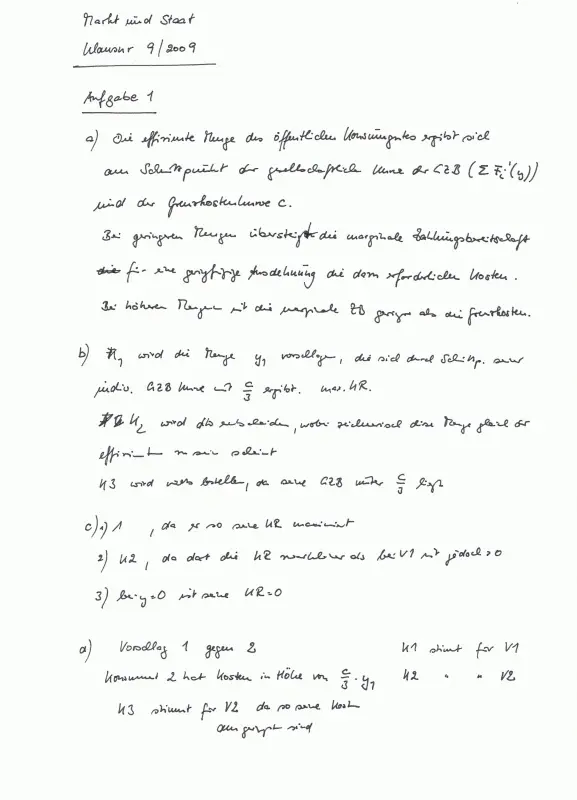 Markt und Staat
Klausur 9/2009
Aufgabe 1
a) Die effiziente Menge des öffentlichen Konsumgutes ergibt sich
am Schnittpunkt der gesellschaftlichen Kurve der GZB (Σ Fi'(y))
und der Grenzkostenkurve C.
Bei geringeren Mengen übersteigt die marginale Zahlungsbereitschaft
für eine geringfügige Ausdehnung die dann erforderlichen Kosten.
Bei höheren Mengen ist die marginale ZB geringer als die Grenzkosten.
b) K1 wird die Menge y1 vorschlagen, die sich durch Schnittp. seiner
indiv. GZB Kurve mit c/3 ergibt. max. KR.
K2 wird dies entscheiden, wobei diese Menge gleich der
effizienten zu sein scheint
K3 wird nichts bestellen, da seine GZB unter c/3 liegt
c) 1) 1, da er so seine KR maximiert
2) K2, da dort die KR als bei V1 ist jedoch >0
3) bei y=0 ist seine KR=0
d) Vorschlag 1 gegen 2 K1 stimmt für V1
Konsument 2 hat Kosten in Höhe von c/3 · y1 K2 " " V2
K3 stimmt für V2 da so seine Kosten
sind